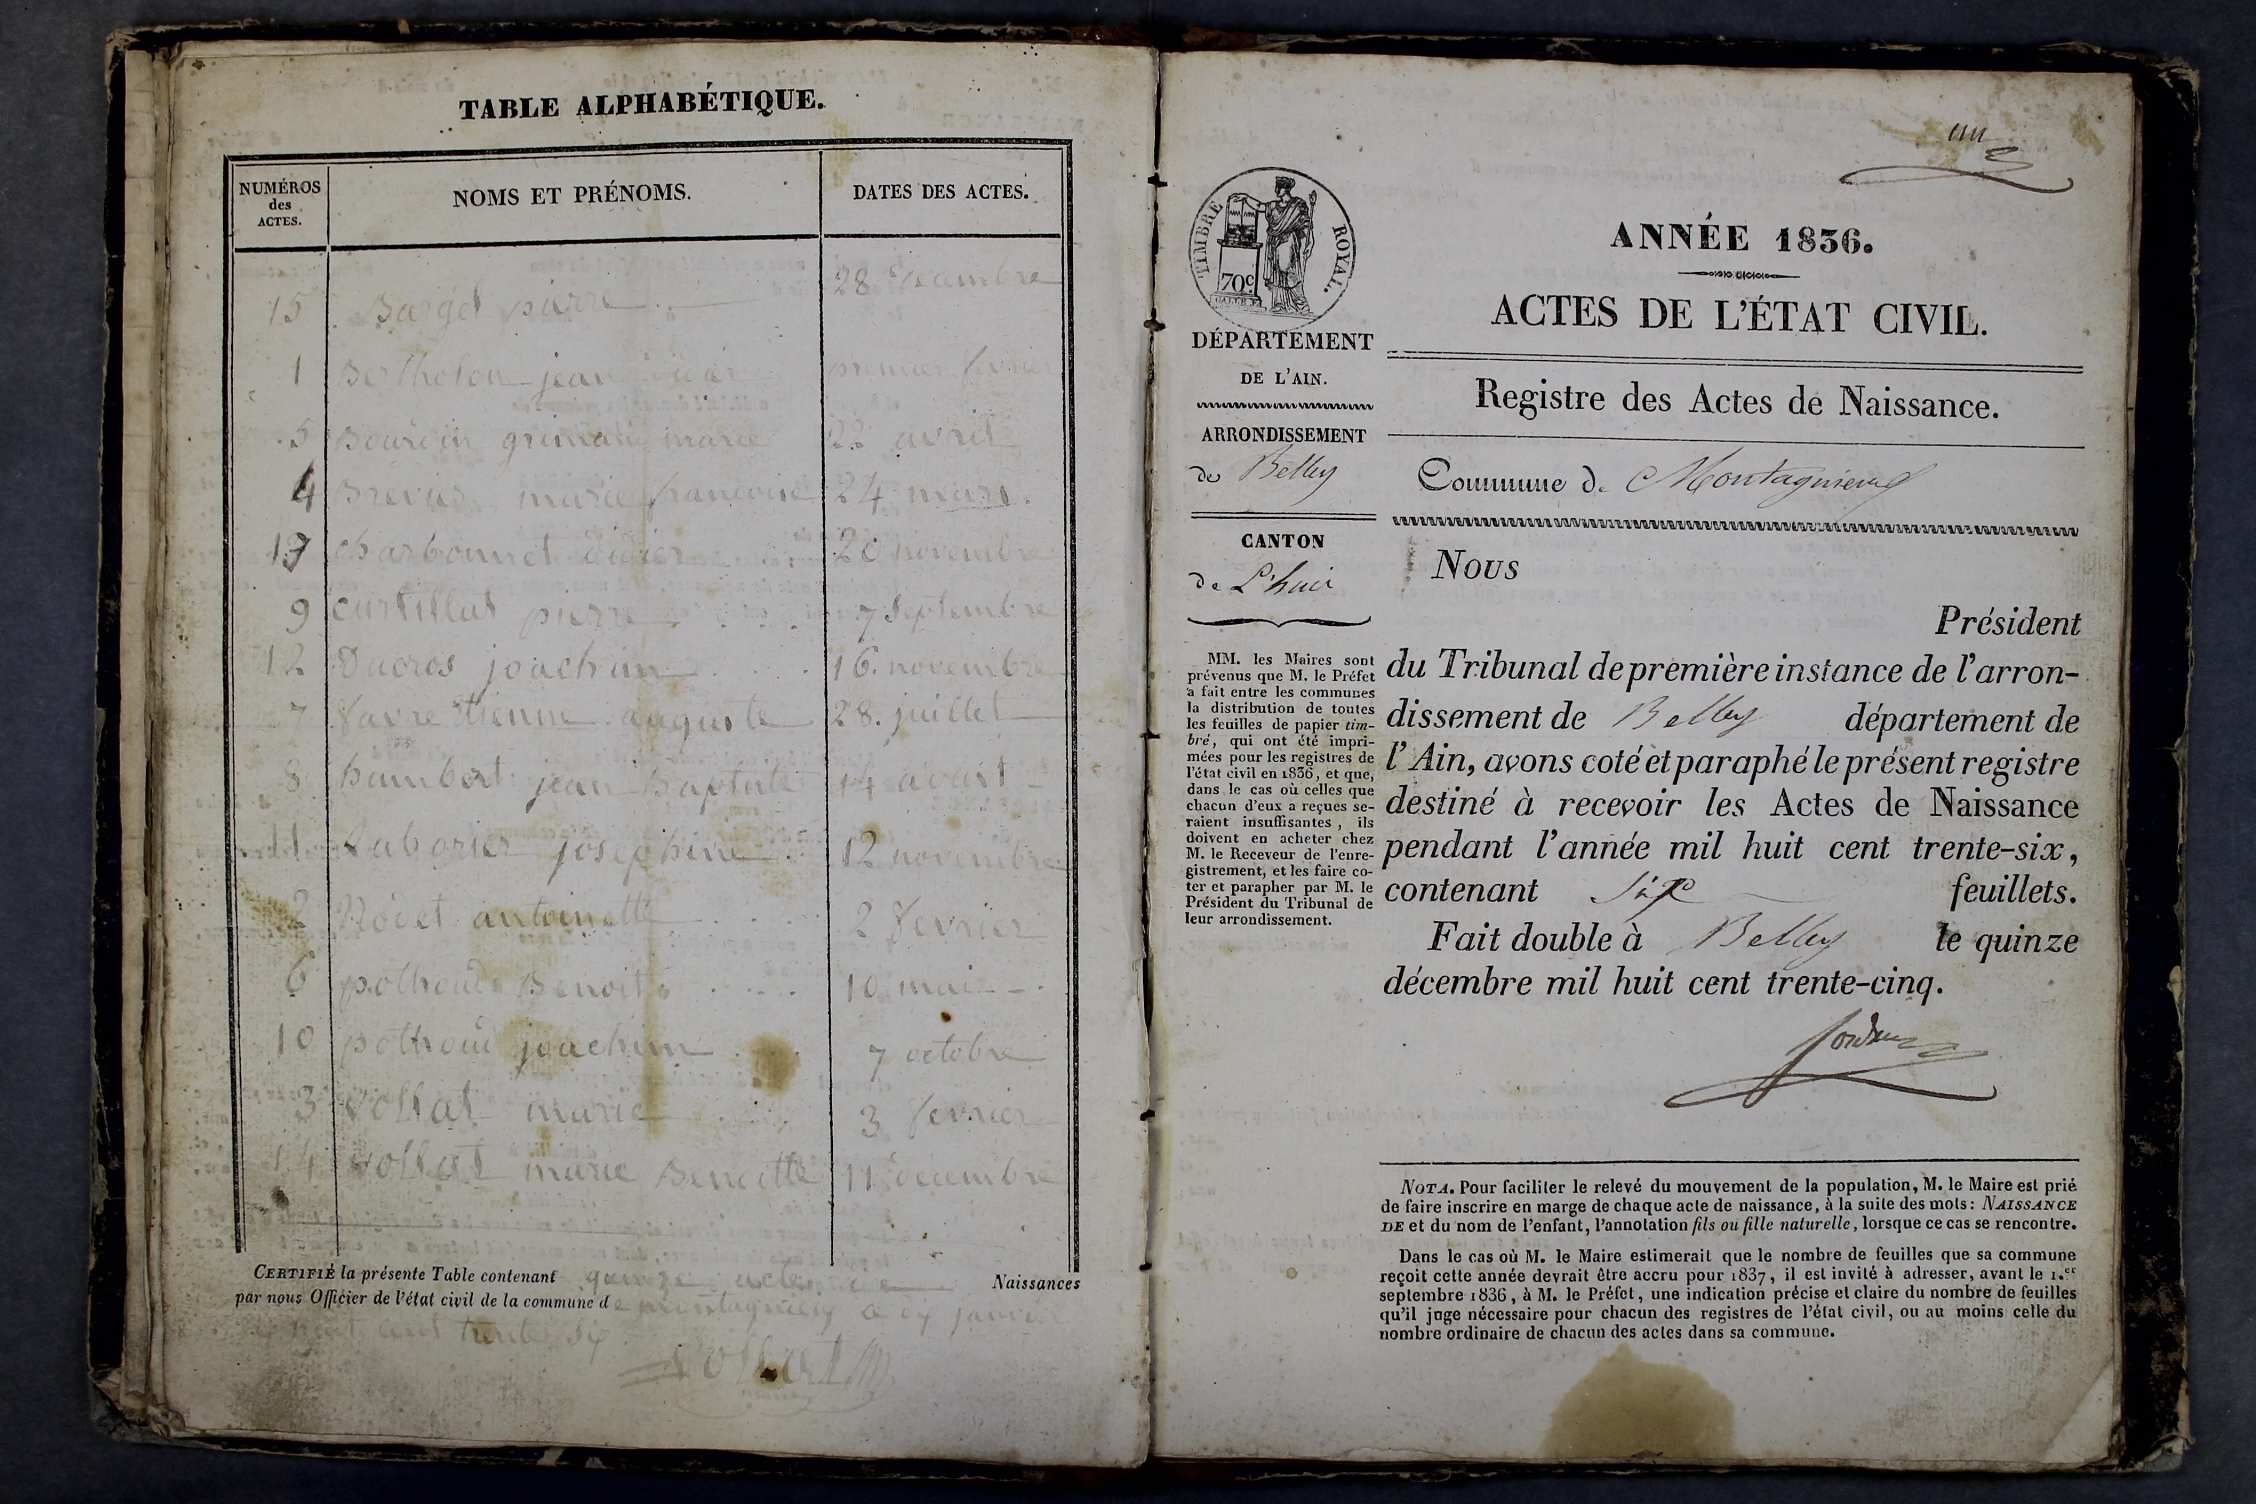 TABLE ALPHABÉTIQUE.
NUMÉROS
des
ACTES.
NOMS ET PRÉNOMS.
DATES DES ACTES.
15 Barget pierre 28 decembre
1 Bertholon jean didier premier fevrier
5 Bourdin grimaud marie 22 avril
4 Brevier marie francoise 24 mars.
13 charbonnet didier 20 novembre
9 curtillat pierre 7 septembre
12 Ducros joachim 16. novembre
7 favre Etienne auguste 28. juillet
8 humbert jean Baptiste 14 aoust
11 Laborier josephine 12 novembre
2 Nodet antoinette 2 fevrier
6 polhoud Benoit 10 mai
10 polhoud joachim 7 octobre
3 vollat marie 3 fevrier
14 vollat marie Benoitte 11 decembre
CERTIFIÉ la présente Table contenant quinze actes de Naissances
par nous Officier de l'état civil de la commune de montagnieu janvier
cent trente six
Vollat
un
TIMBRE ROYAL.
70c.
ANNÉE 1836.
ACTES DE L'ÉTAT CIVIL.
Registre des Actes de Naissance.
DÉPARTEMENT
DE L'AIN.
ARRONDISSEMENT
de Belley
CANTON
de L'huis
MM. les Maires sont
prévenus que M. le Préfet
a fait entre les communes
la distribution de toutes
les feuilles de papier tim-
bré, qui ont été impri-
mées pour les registres de
l'état civil en 1836, et que,
dans le cas où celles que
chacun d'eux a reçues se-
raient insuffisantes, ils
doivent en acheter chez
M. le Receveur de l'enre-
gistrement, et les faire co-
ter et parapher par M. le
Président du Tribunal de
leur arrondissement.
Commune de Montagnieu
Nous
Président
du Tribunal de première instance de l'arron-
dissement de Belley département de
l'Ain, avons coté et paraphé le présent registre
destiné à recevoir les Actes de Naissance
pendant l'année mil huit cent trente-six,
contenant Six feuillets.
Fait double à Belley le quinze
décembre mil huit cent trente-cinq.
NOTA. Pour faciliter le relevé du mouvement de la population, M. le Maire est prié
de faire inscrire en marge de chaque acte de naissance, à la suite des mots: NAISSANCE
DE et du nom de l'enfant, l'annotation fils ou fille naturelle, lorsque ce cas se rencontre.
Dans le cas où M. le Maire estimerait que le nombre de feuilles que sa commune
reçoit cette année devrait être accru pour 1837, il est invité à adresser, avant le 1.er
septembre 1836, à M. le Préfet, une indication précise et claire du nombre de feuilles
qu'il juge nécessaire pour chacun des registres de l'état civil, ou au moins celle du
nombre ordinaire de chacun des actes dans sa commune.